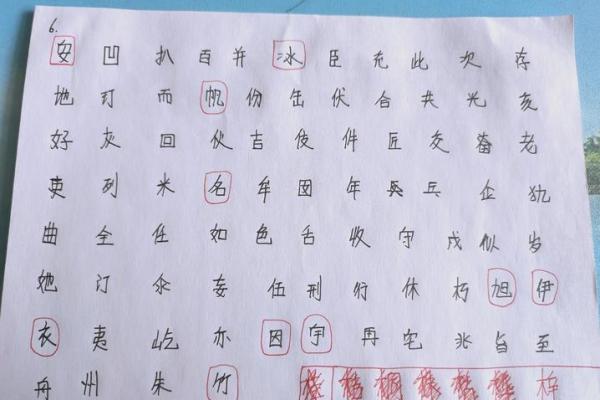 6.
安 凹 扒 百 并 冰 臣 充 此 次 存
地 灯 而 帆 份 缶 伏 合 共 光 亥
好 灰 回 伙 吉 伎 件 匠 交 老
吏 列 米 名 牟 囡 年 乒 兵 企 犰
曲 全 任 如 色 舌 收 守 戍 似 岁
她 汀 汆 妄 伍 刑 行 休 朽 旭 伊
衣 夷 屹 亦 因 宇 再 宅 兆 旨 至
舟 州 朱 竹 桔 桐